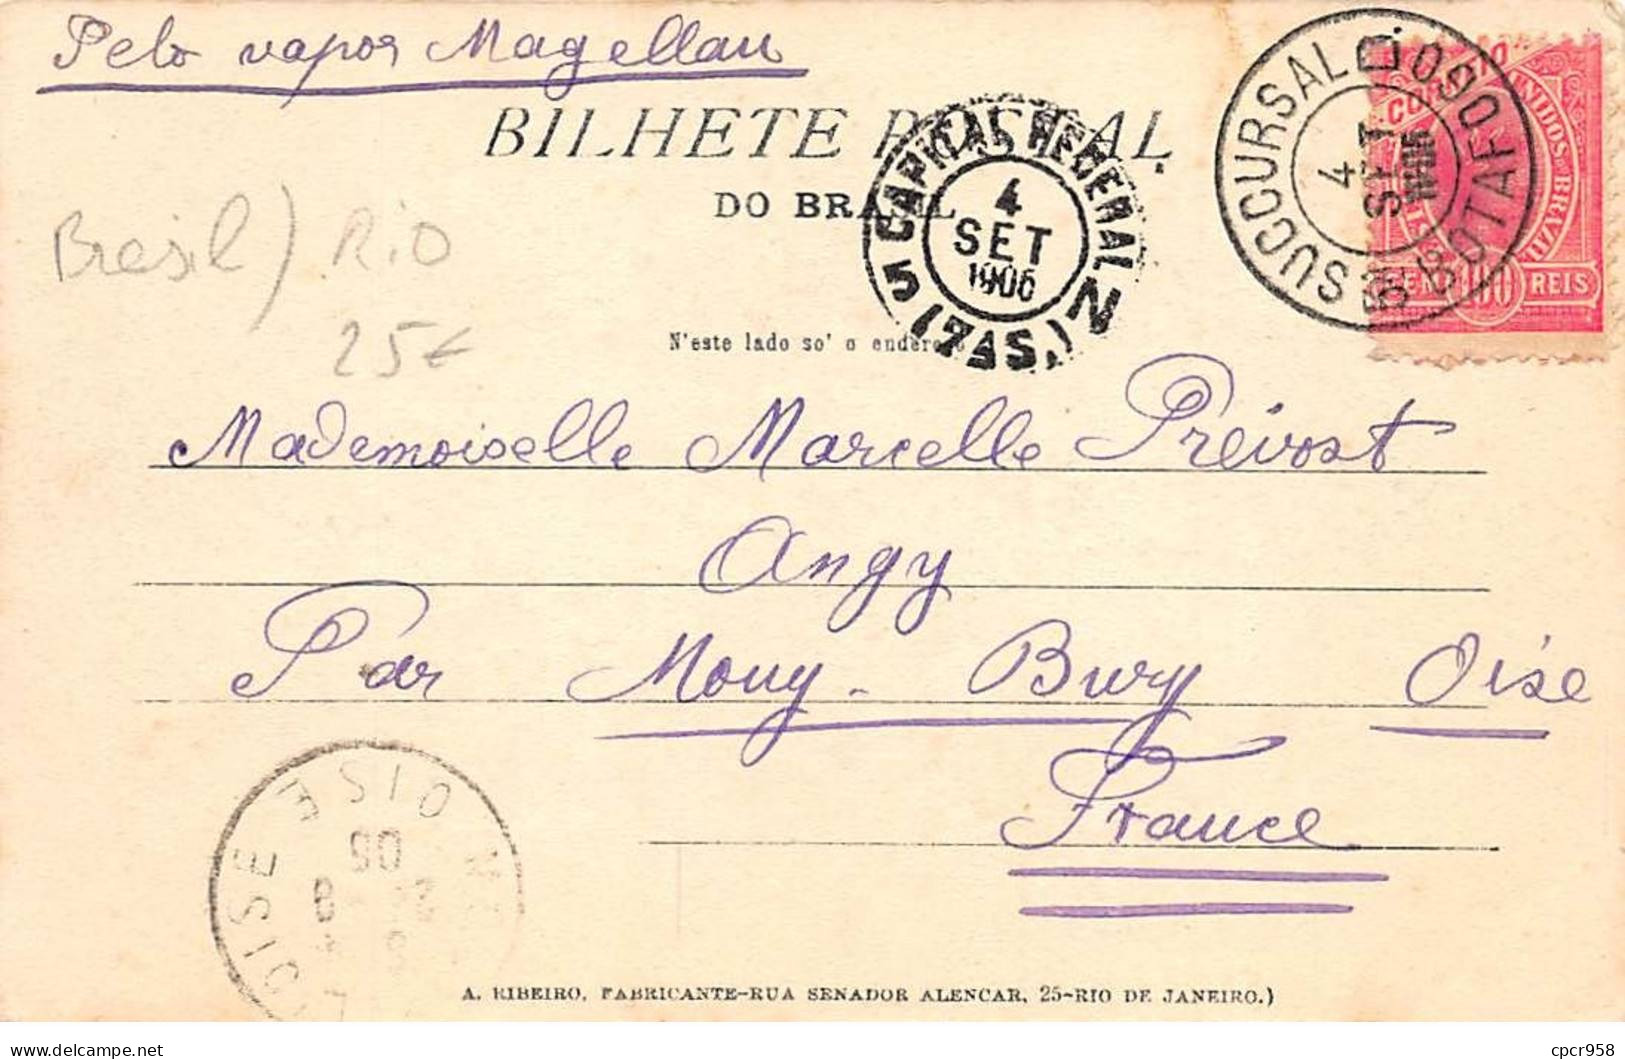 Pelo vapor Magellan
BILHETE POSTAL
DO BRASIL
SUCCURSAL DO BOTAFOGO
4 SET
CAPITAL FEDERAL
4
SET
1906
5 (7AS.) N
CEM 100 REIS
Bresil) Rio
25€
N'este lado so' o endereço
Mademoiselle Marcelle Prévost
Angy
Par Mouy-Bury Oise
France
OISE
06
OISE
A. RIBEIRO, FABRICANTE-RUA SENADOR ALENCAR, 25-RIO DE JANEIRO.)
delcampe.net
cpcr958